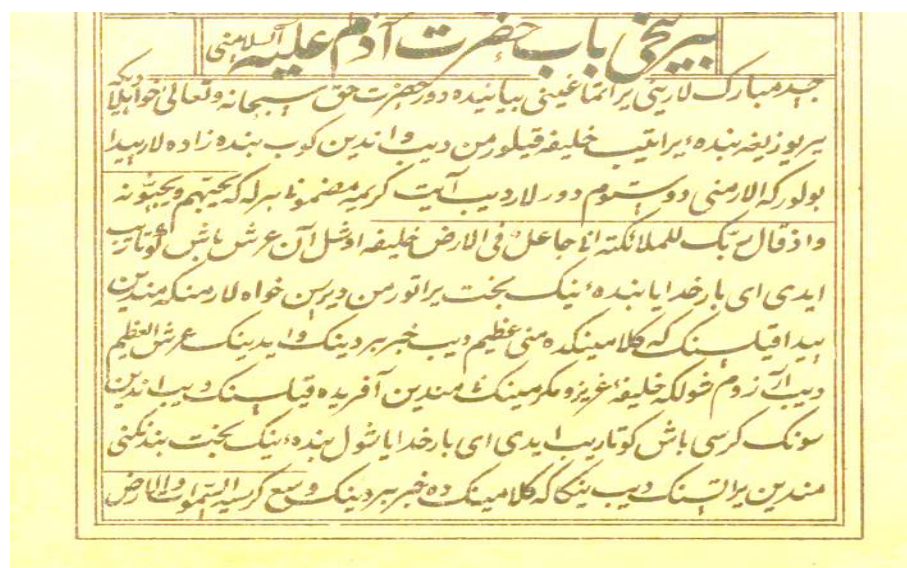 بیرنجی باب حضرت آدم علیه السلامنی
جسد مبارک لارینی یراتماغینی بیانیده دور حضرت حق سبحانه وتعالی خواهلادیکه
یریوزیغه بنده یراتیب خلیفه قیلورمن دیب واندین کوب بنده زاده لار پیدا
بولور که الارمنی دوستوم دورلار دیب آیت کریمه مضمونی برله که یحبهم ویحبونه
واذ قال ربک للملائکته انی جاعل فی الارض خلیفه اوشل آن عرش باش کوتاریب
ایدی ای بارخدایا بنده نیک بخت یراتورمن دیرسن خواه لارمنکه مندین
پیدا قیلسنک که کلامینکده منی عظیم دیب خبر بردینک و ایدینک عرش العظیم
دیب آرزوم شولکه خلیفهٔ عزیز و مکرمینک نی مندین آفریده قیلسنک دیب اندین
سونک کرسی باش کوتاریب ایدی ای بارخدایا شول بنده نیک بخت بندنکنی
مندین یراتسنک دیب ینکا که کلامینک ده خبر بردینک وسع کرسیه السموات والارض